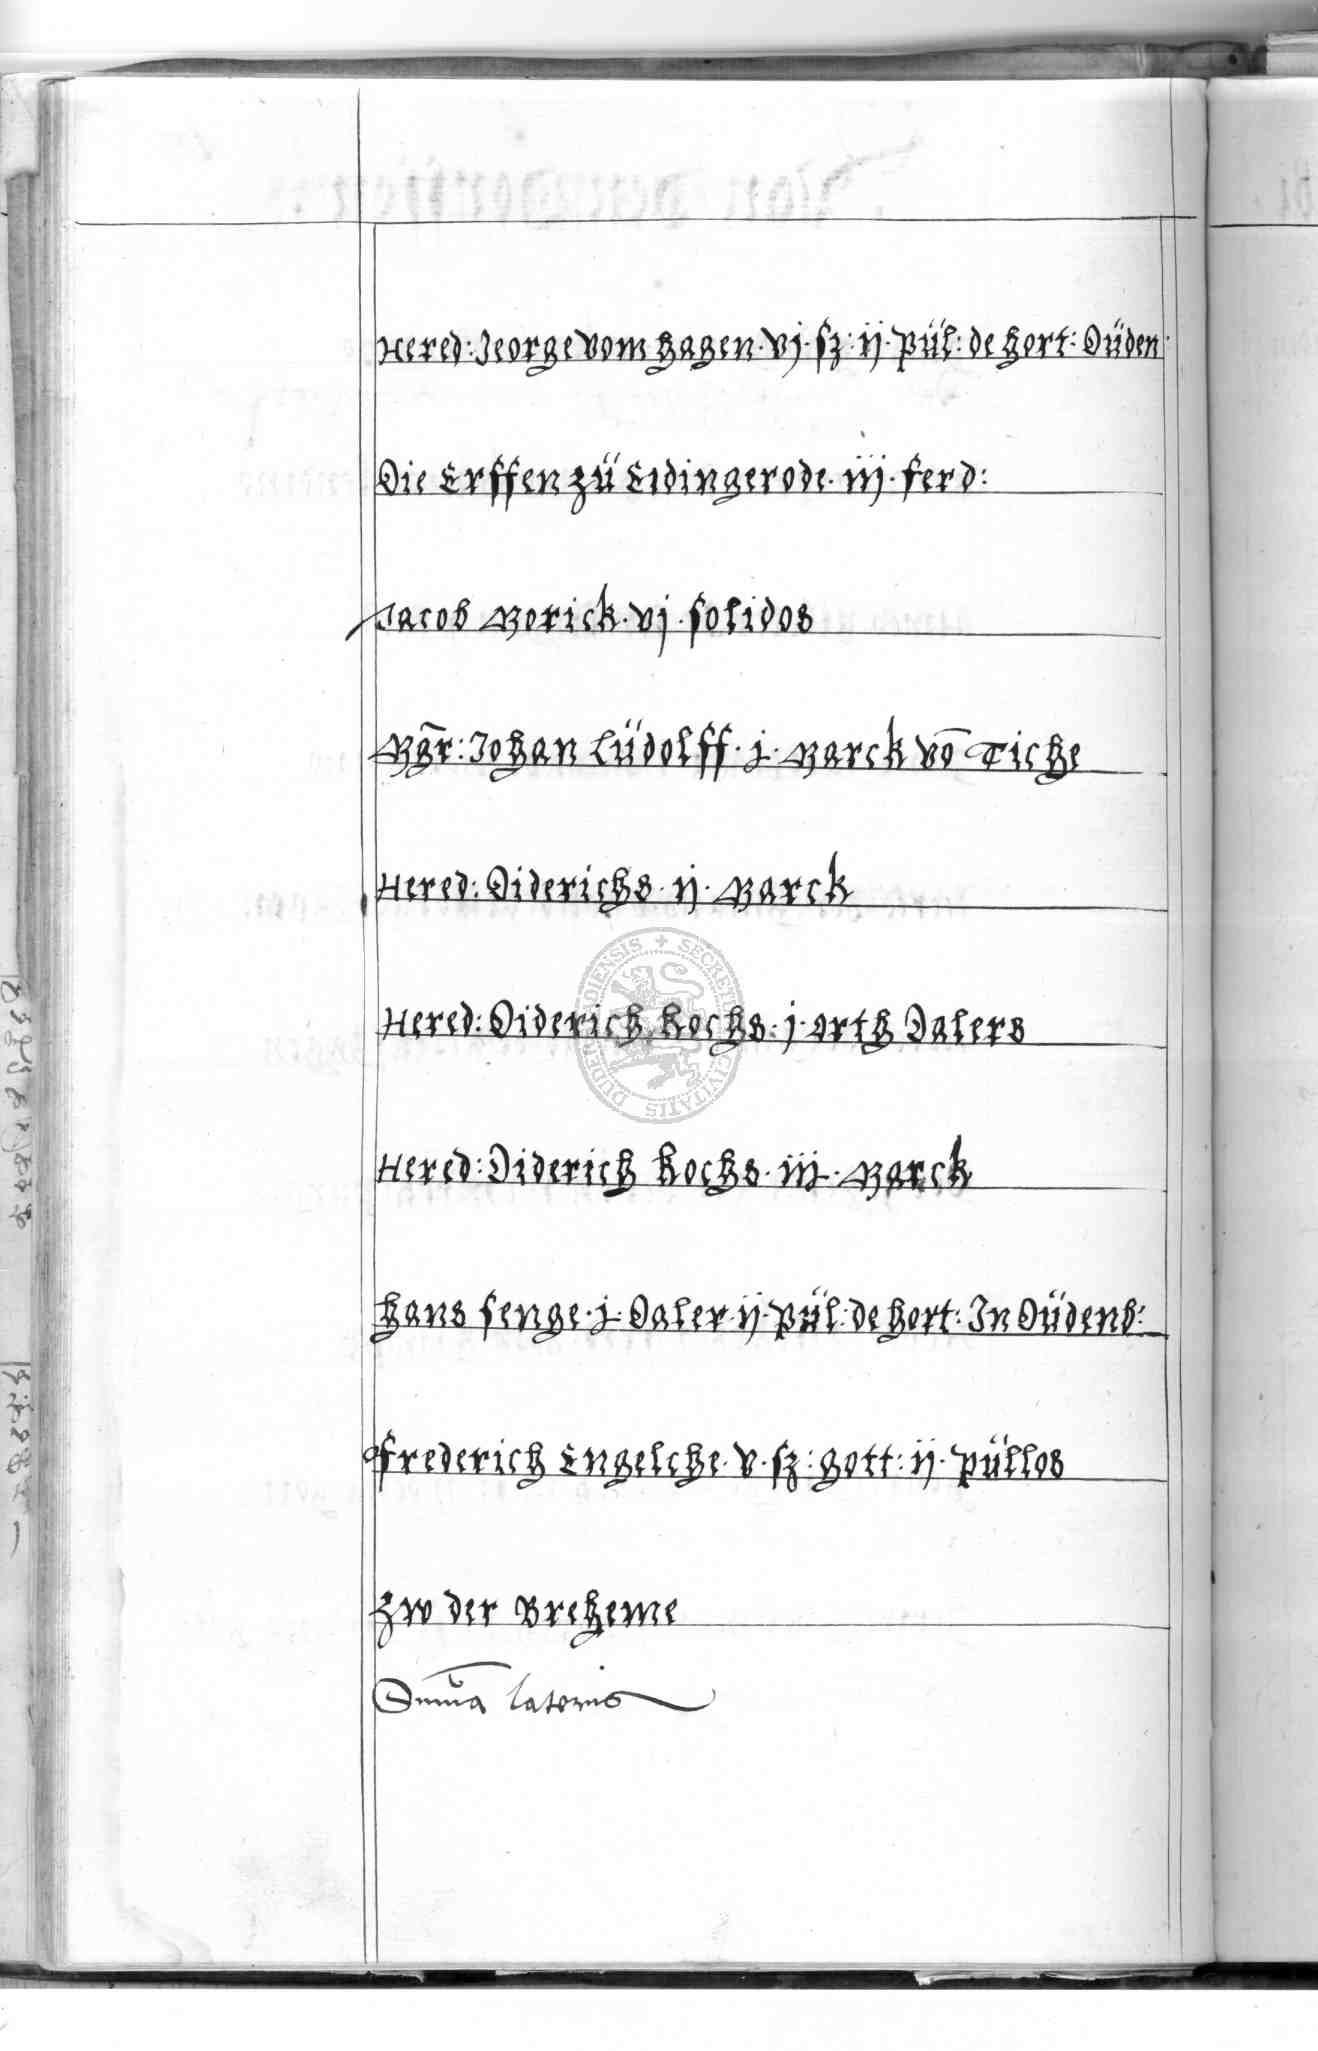 Hered: Jeorge vom Hagen · vj · sz : ij · pül : de Hort : Düden :
Die Erffen zü Eidingerode · iij · ferd :
Jacob Morick · vj · solidos
Mgr̄ : Johan Lüdolff · j · Marck vō Tiche
Hered : Diderichs · ij · Marck
Hered : Diderich Kochs · j · orth Dalers
Hered : Diderich Kochs · iij · Marck
Hans senge · j · Daler · ij · pül : de hort : In Düdenb :
frederich Engelche · v · sz : gott : ij · püllos
Zw der Breheme
Suma lateris
SECRETE CIVITATIS